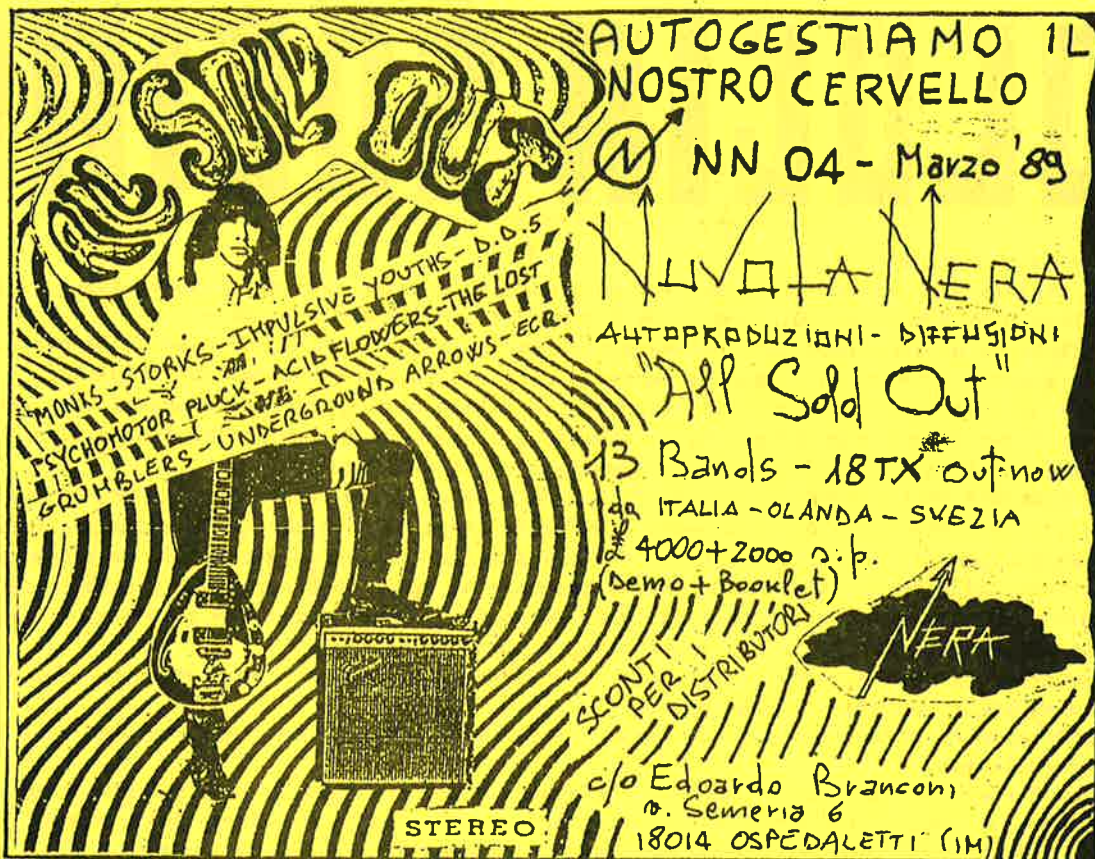 ALL SOLD OUT
MONKS-STORKS-IMPULSIVE YOUTHS-D.D.5
PSYCHOMOTOR PLUCK-ACID FLOWERS-THE LOST
GRUMBLERS-UNDERGROUND ARROWS-ECR.
STEREO
AUTOGESTIAMO IL
NOSTRO CERVELLO
N NN 04 - Marzo '89
NUVOLA NERA
AUTOPRODUZIONI - DIFFUSIONI
"All Sold Out"
13 Bands - 18 TX out now
da ITALIA - OLANDA - SVEZIA
£ 4000+2000 s.p.
(Demo + Booklet)
SCONTI
PER I
DISTRIBUTORI
NERA
c/o Edoardo Branconi
v. Semeria 6
18014 OSPEDALETTI (IM)